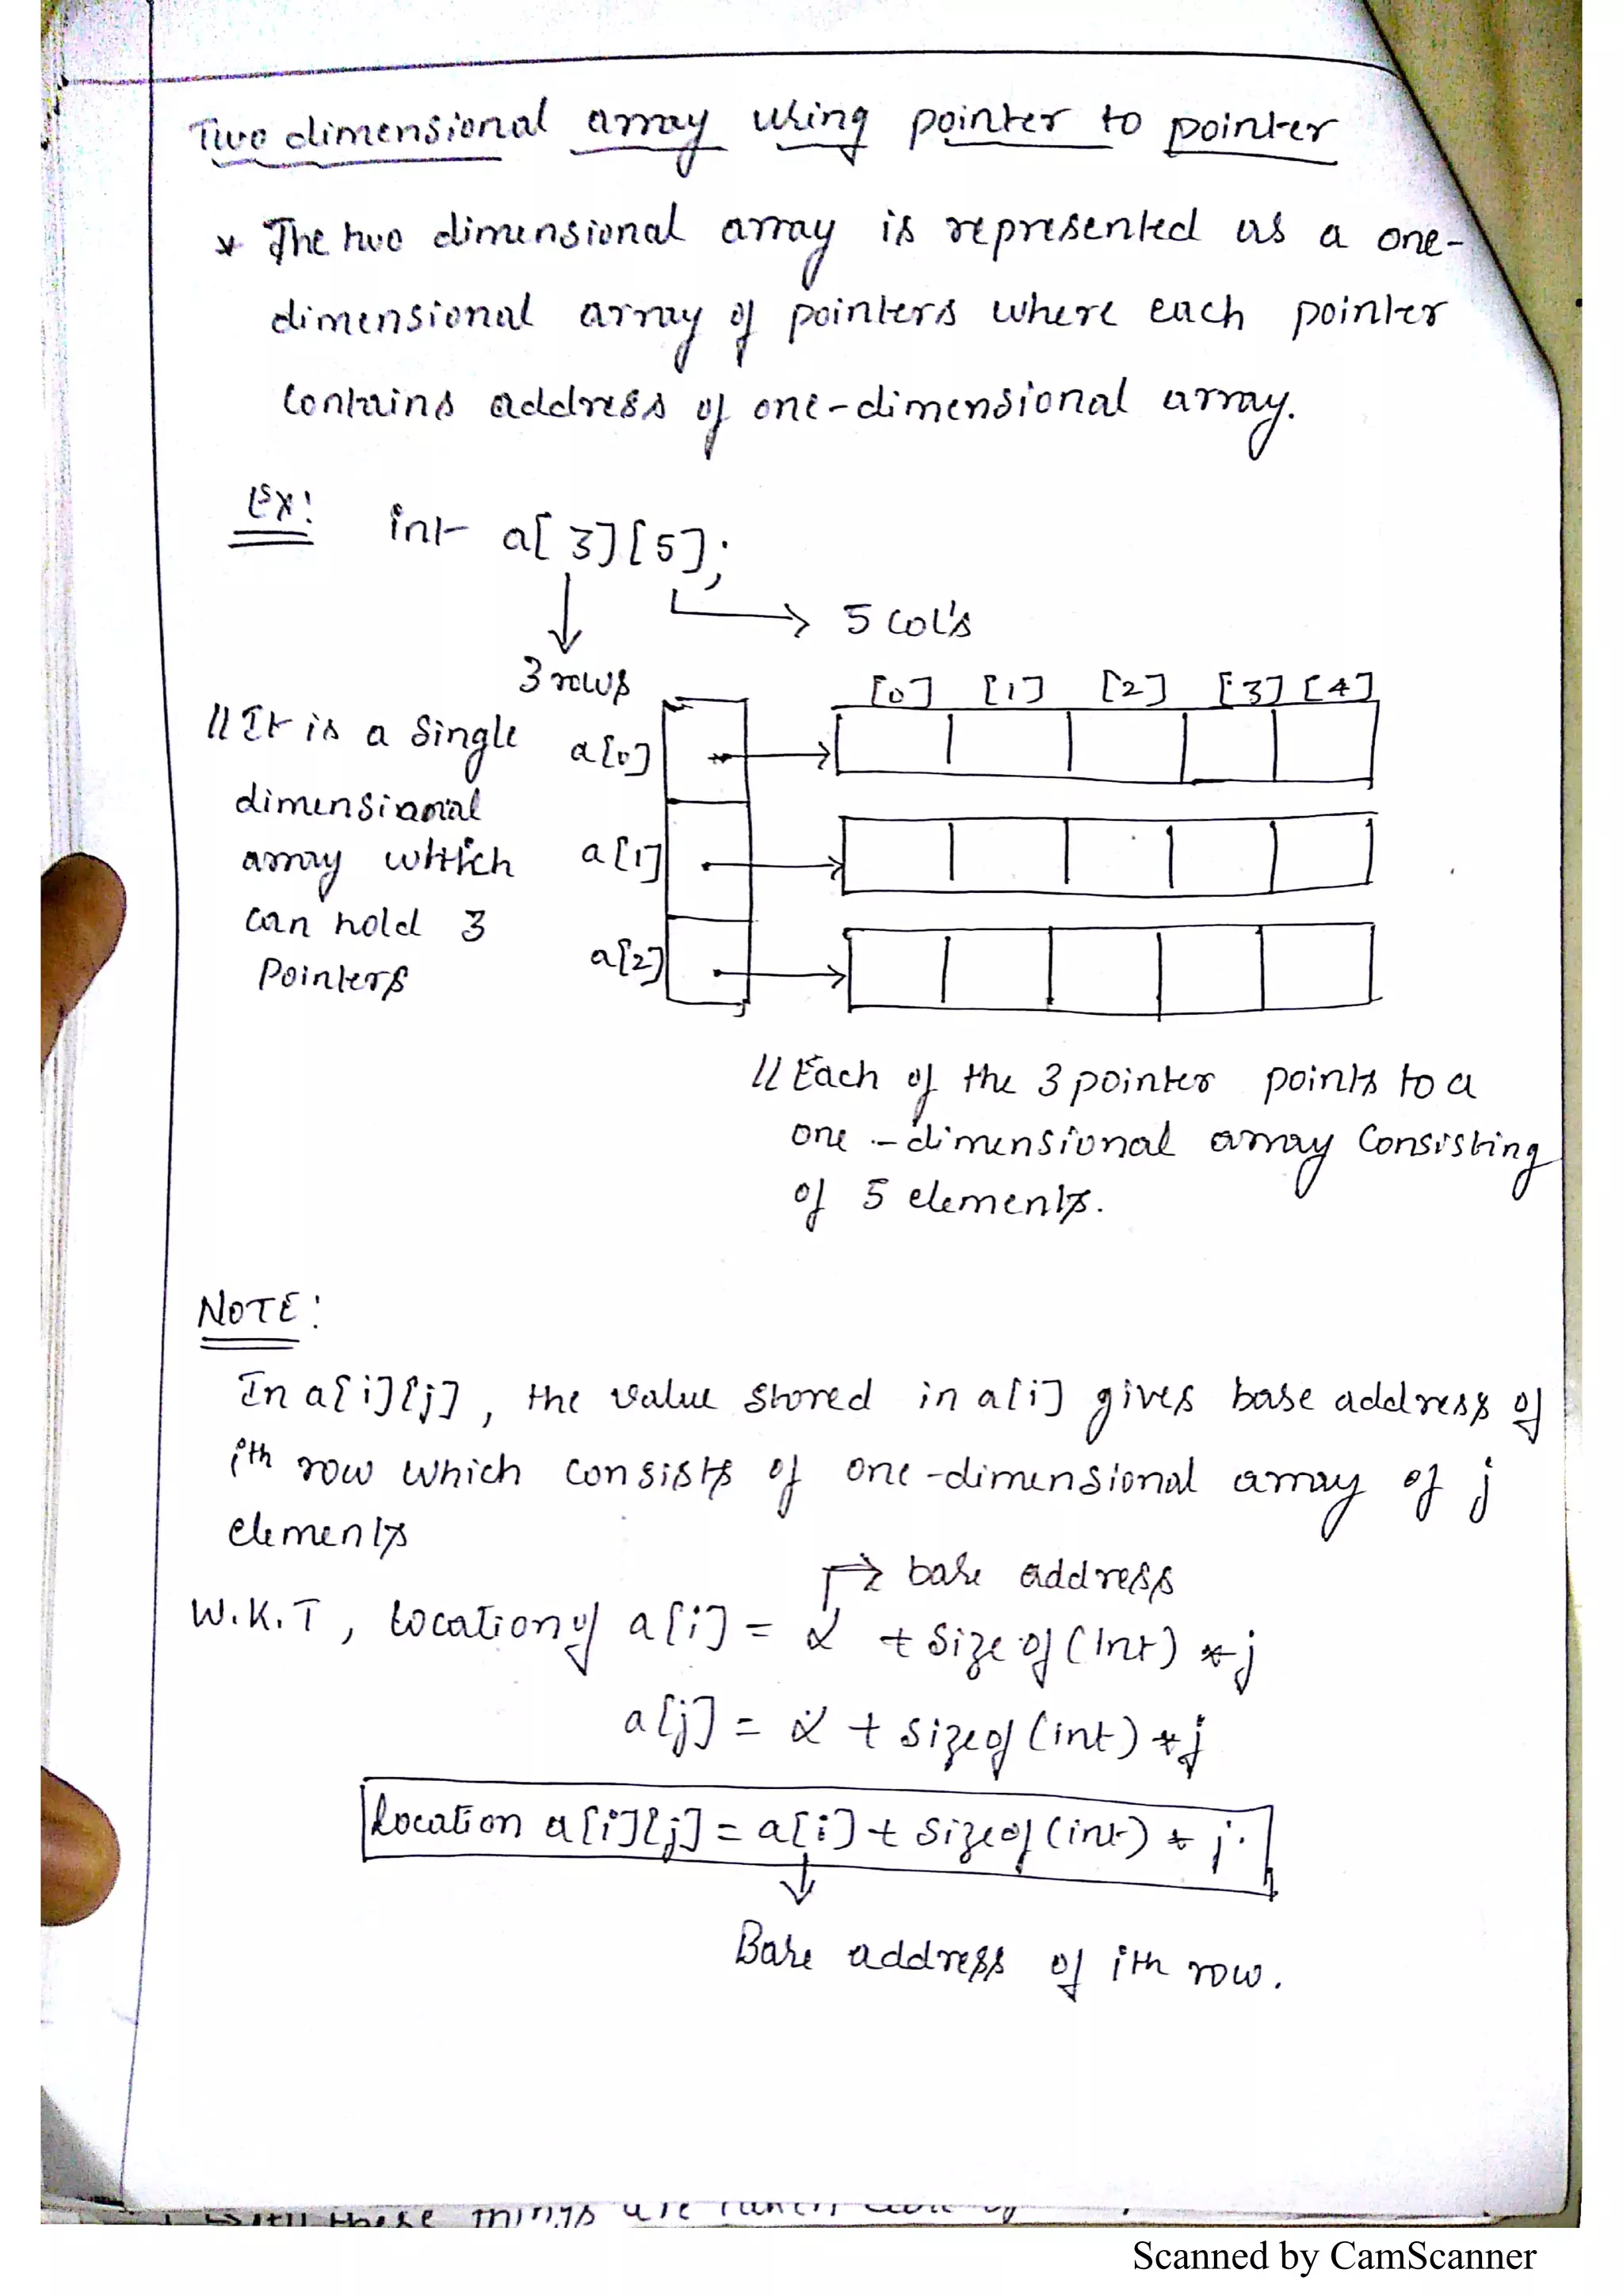 Two dimensional array using pointer to pointer
* The two dimensional array is represented as a one-
dimensional array of pointers where each pointer
contains address of one-dimensional array.
Ex: int a[3][5];
5 col's
3 rows
[0] [1] [2] [3] [4]
//It is a single
dimensional
array which
can hold 3
pointers
a[0]
a[1]
a[2]
// Each of the 3 pointer points to a
one-dimensional array consisting
of 5 elements.
NOTE:
In a[i][j], the value stored in a[i] gives base address of
ith row which consists of one-dimensional array of j
elements
base address
W.K.T, location of a[i] = α + size of (int) * j
a[j] = α + sizeof (int) * j
Location a[i][j] = a[i] + sizeof (int) * j.
Base address of ith row.
these things are taken care of
Scanned by CamScanner